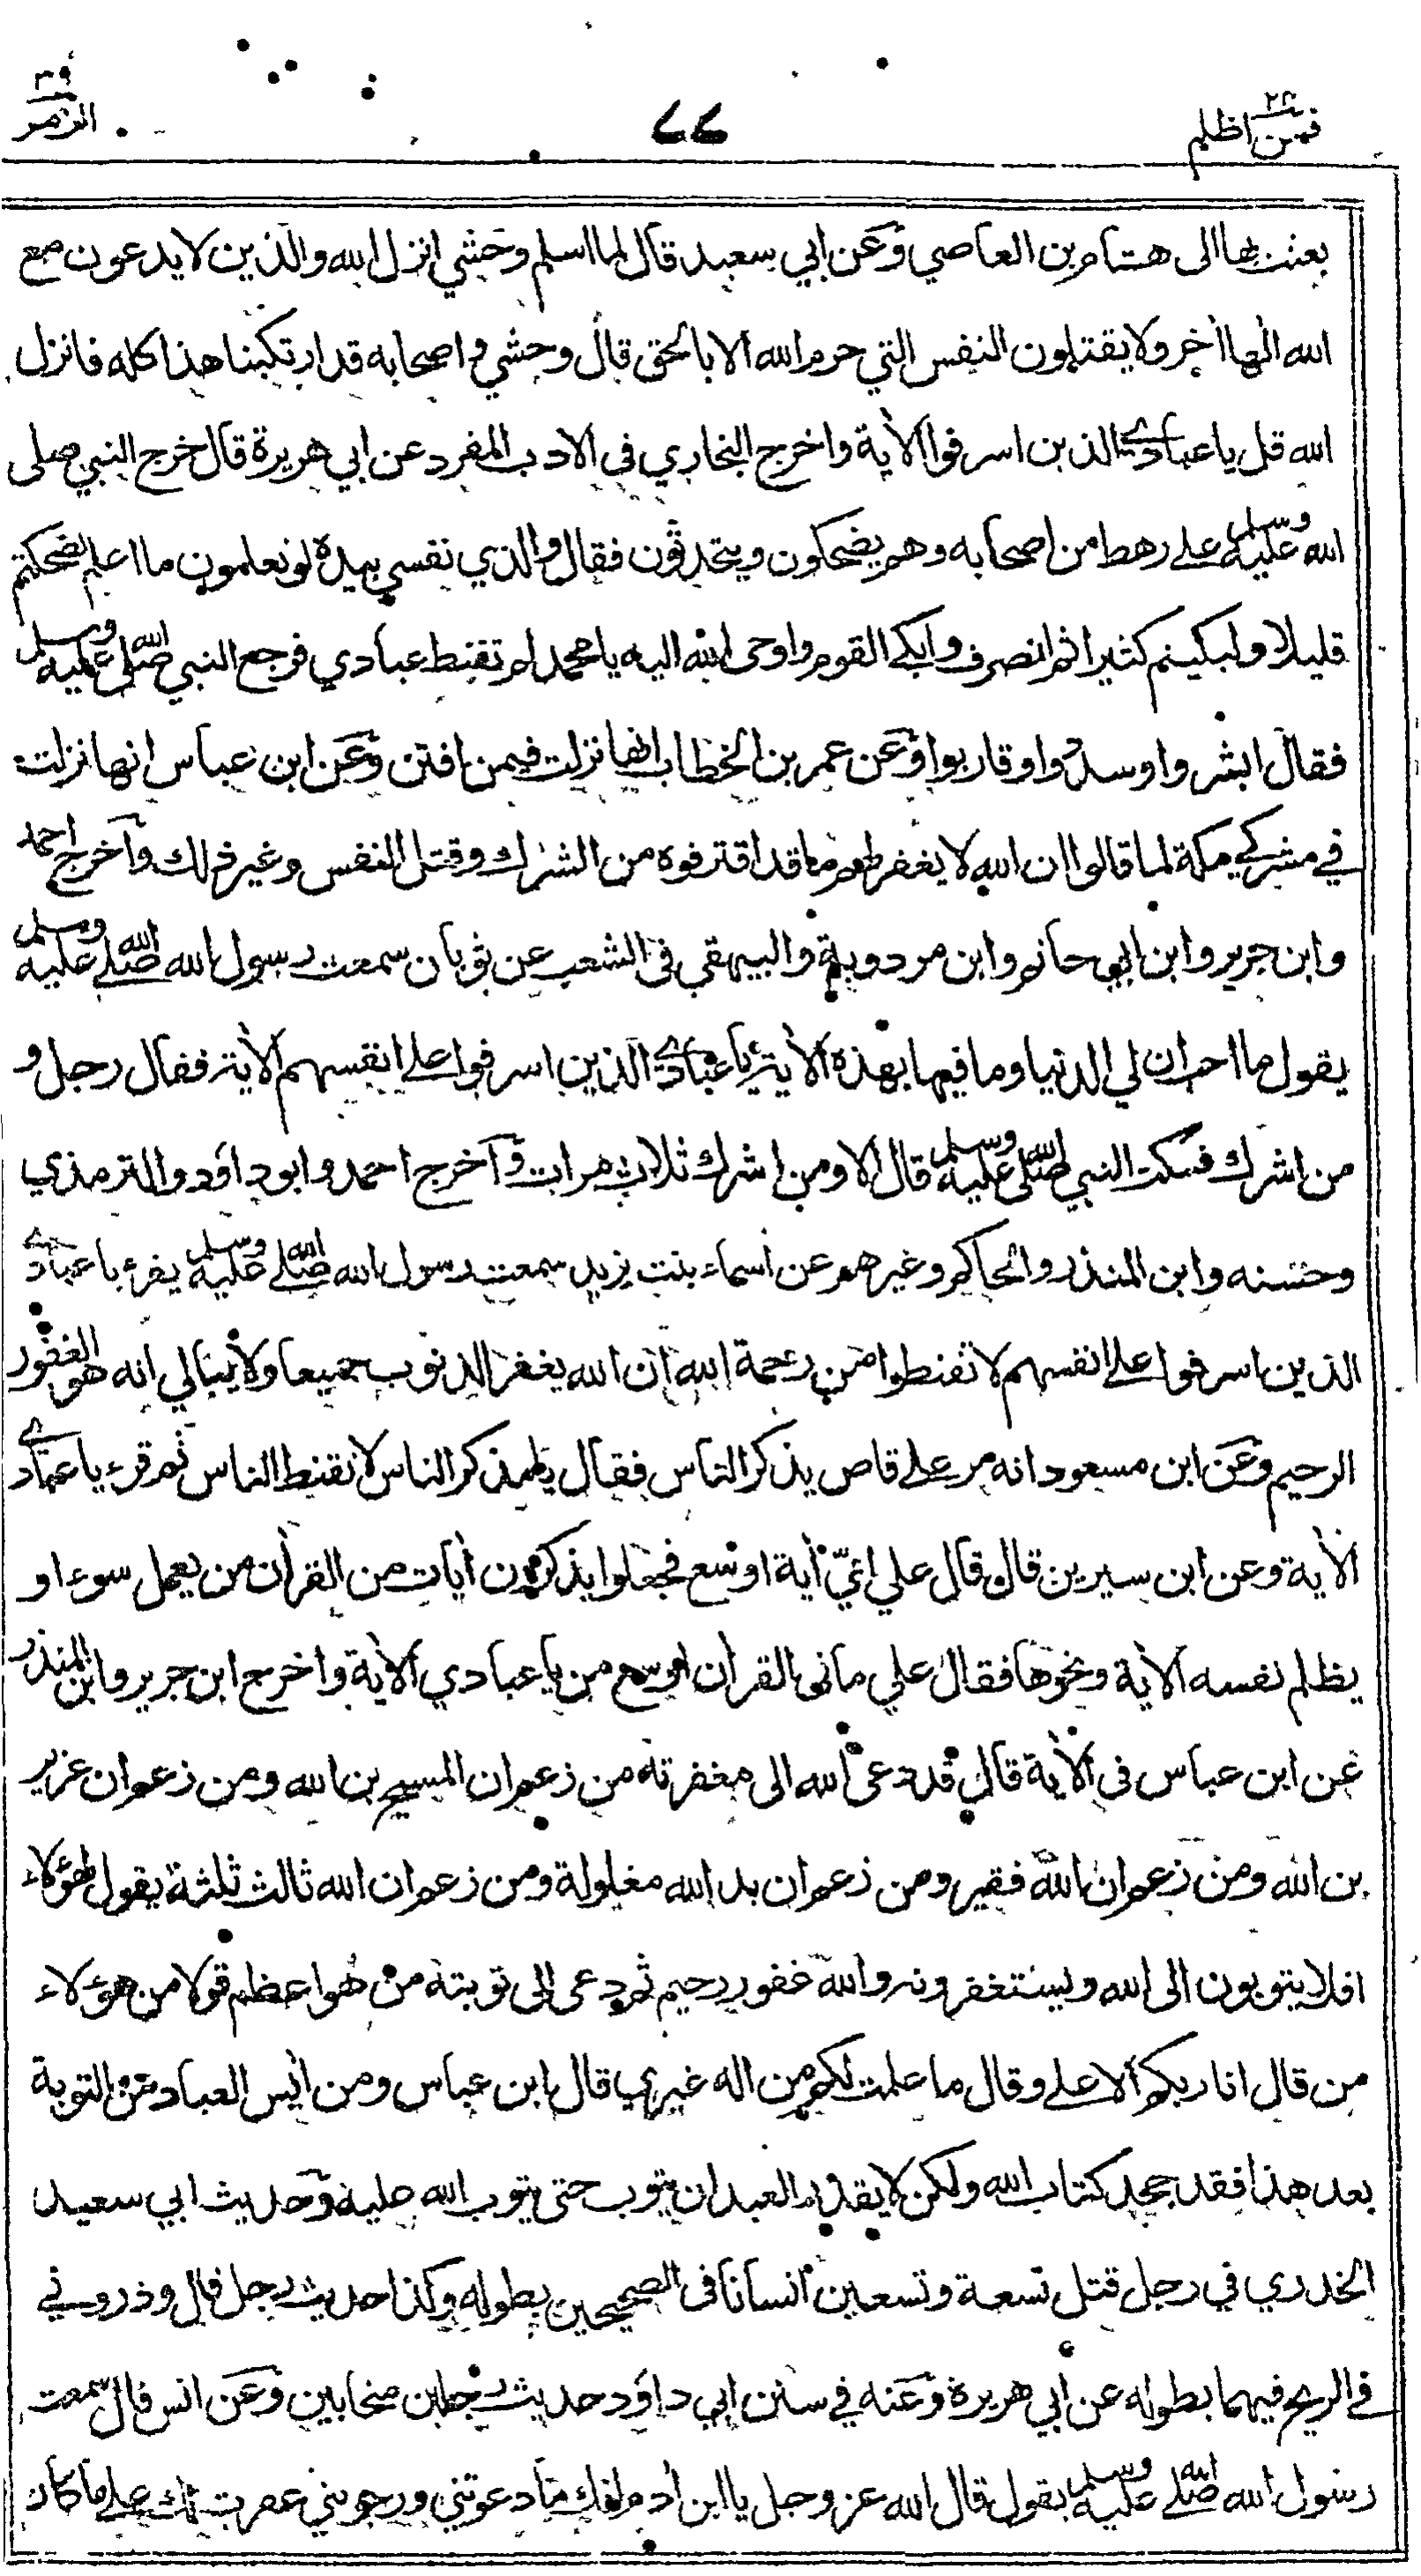 فمن اظلم ٢٤
٧٧
الزمر ٣٩
بعثت بها الى هشام بن العاصي وعن ابي سعيد قال لما اسلم وحشي انزل الله والذين لا يدعون مع
الله الها اخر ولا يقتلون النفس التي حرم الله الا بالحق قال وحشي واصحابه قد ارتكبنا هذا كله فانزل
الله قل يا عبادي الذين اسرفوا الأية واخرج البخاري في الادب المفرد عن ابي هريرة قال خرج النبي صلى
الله عليه وسلم على رهط من اصحابه وهم يضحكون ويتحدثون فقال والذي نفسي بيده لو تعلمون ما اعلم لضحكتم
قليلا ولبكيتم كثيرا ثم انصرف وابكى القوم واوحى الله اليه يا محمد لم تقنط عبادي فرجع النبي صلى الله عليه وسلم
فقال ابشروا وسددوا وقاربوا وعن عمر بن الخطاب انها نزلت فيمن افتن وعن ابن عباس انها نزلت
في مشركي مكة لما قالوا ان الله لا يغفر لهم ما قد اقترفوه من الشرك وقتل النفس وغير ذلك وأخرج احمد
وابن جرير وابن ابي حاتم وابن مردوية والبيهقي في الشعب عن ثوبان سمعت رسول الله صلى الله عليه وسلم
يقول ما احب ان لي الدنيا وما فيها بهذه الأية يا عبادي الذين اسرفوا على انفسهم الأية فقال رجل و
من اشرك فسكت النبي صلى الله عليه وسلم قال الا ومن اشرك ثلاث مرات وأخرج احمد وابو داؤد والترمذي
وحسنه وابن المنذر والحاكم وغيرهم عن اسماء بنت يزيد سمعت رسول الله صلى الله عليه وسلم يقرء يا عبادي
الذين اسرفوا على انفسهم لا تقنطوا من رحمة الله ان الله يغفر الذنوب جميعا ولا يبالي انه هو الغفور
الرحيم وعن ابن مسعود انه مر على قاص يذكر الناس فقال يا مذكر الناس لا تقنط الناس ثم قرء يا عبادي
الأية وعن ابن سيرين قال قال علي ائيّ أية اوسع فجعلوا يذكرون أيات من القرأن من يعمل سوء او
يظلم نفسه الأية ونحوها فقال علي ما فى القرأن اوسع من يا عبادي الأية واخرج ابن جرير وابن المنذر
عن ابن عباس فى الأية قال قد دعى الله الى مغفرته من زعم ان المسيح بن الله ومن زعم ان عزير
بن الله ومن زعم ان الله فقير ومن زعم ان يد الله مغلولة ومن زعم ان الله ثالث ثلثة يقول لهؤلاء
افلا يتوبون الى الله ويستغفرونه والله غفور رحيم ثم دعى الى توبته من هو اعظم قولا من هؤلاء
من قال انا ربكم الاعلى وقال ما علمت لكم من اله غيري قال ابن عباس ومن أيس العباد من التوبة
بعد هذا فقد جحد كتاب الله ولكن لا يقدر العبد ان يتوب حتى يتوب الله عليه وحديث ابي سعيد
الخدري في رجل قتل تسعة وتسعين انسانا فى الصحيحين بطوله وكذا حديث رجل قال وذروني
في الريح فيهما بطوله عن ابي هريرة وعنه في سنن ابي داؤد حديث رجلين متحابين وعن انس قال سمعت
رسول الله صلى الله عليه وسلم يقول قال الله عز وجل يا ابن أدم انك ما دعوتني ورجوتني غفرت لك على ما كان